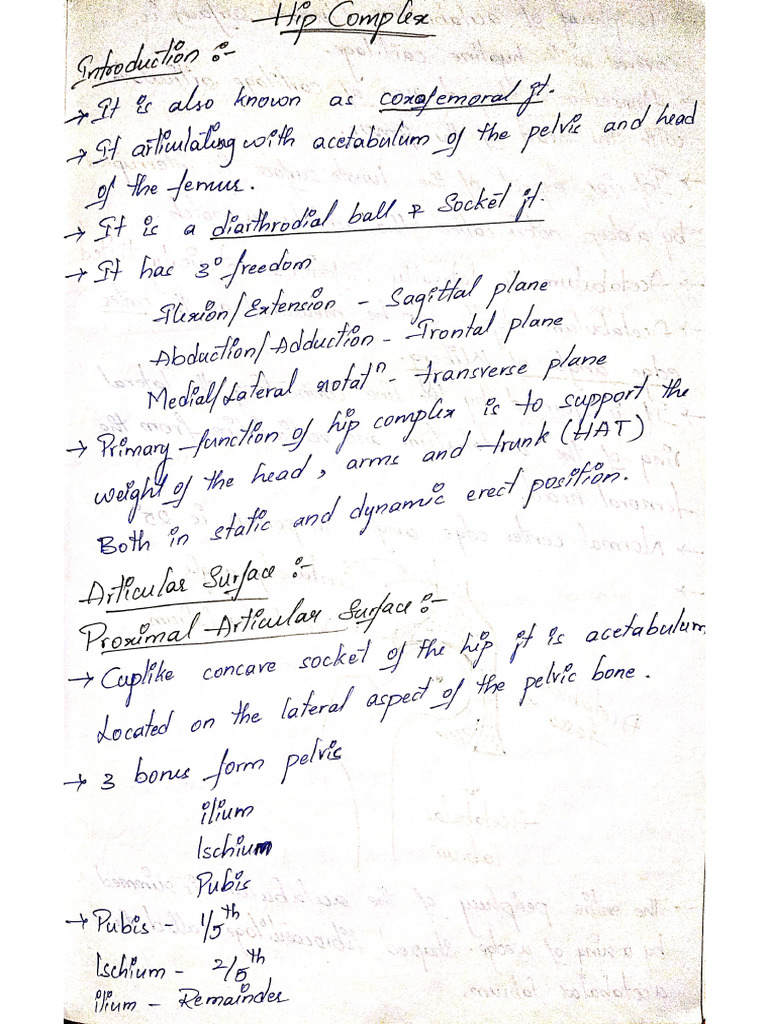 Hip Complex
Introduction :-
→ It is also known as coxofemoral jt.
→ It articulating with acetabulum of the pelvis and head
of the femur.
→ It is a diarthrodial ball & Socket jt.
→ It has 3° freedom
Flexion/Extension - Sagittal plane
Abduction/Adduction - Frontal plane
Medial/Lateral rotatⁿ - transverse plane
→ Primary function of hip complex is to support the
weight of the head, arms and trunk (HAT)
Both in static and dynamic erect position.
Articular Surface :-
Proximal Articular Surface :-
→ Cuplike concave socket of the hip jt is acetabulum
Located on the lateral aspect of the pelvic bone.
→ 3 bones form pelvis
ilium
Ischium
Pubis
→ Pubis - 1/5th
Ischium - 2/5th
ilium - Remainder